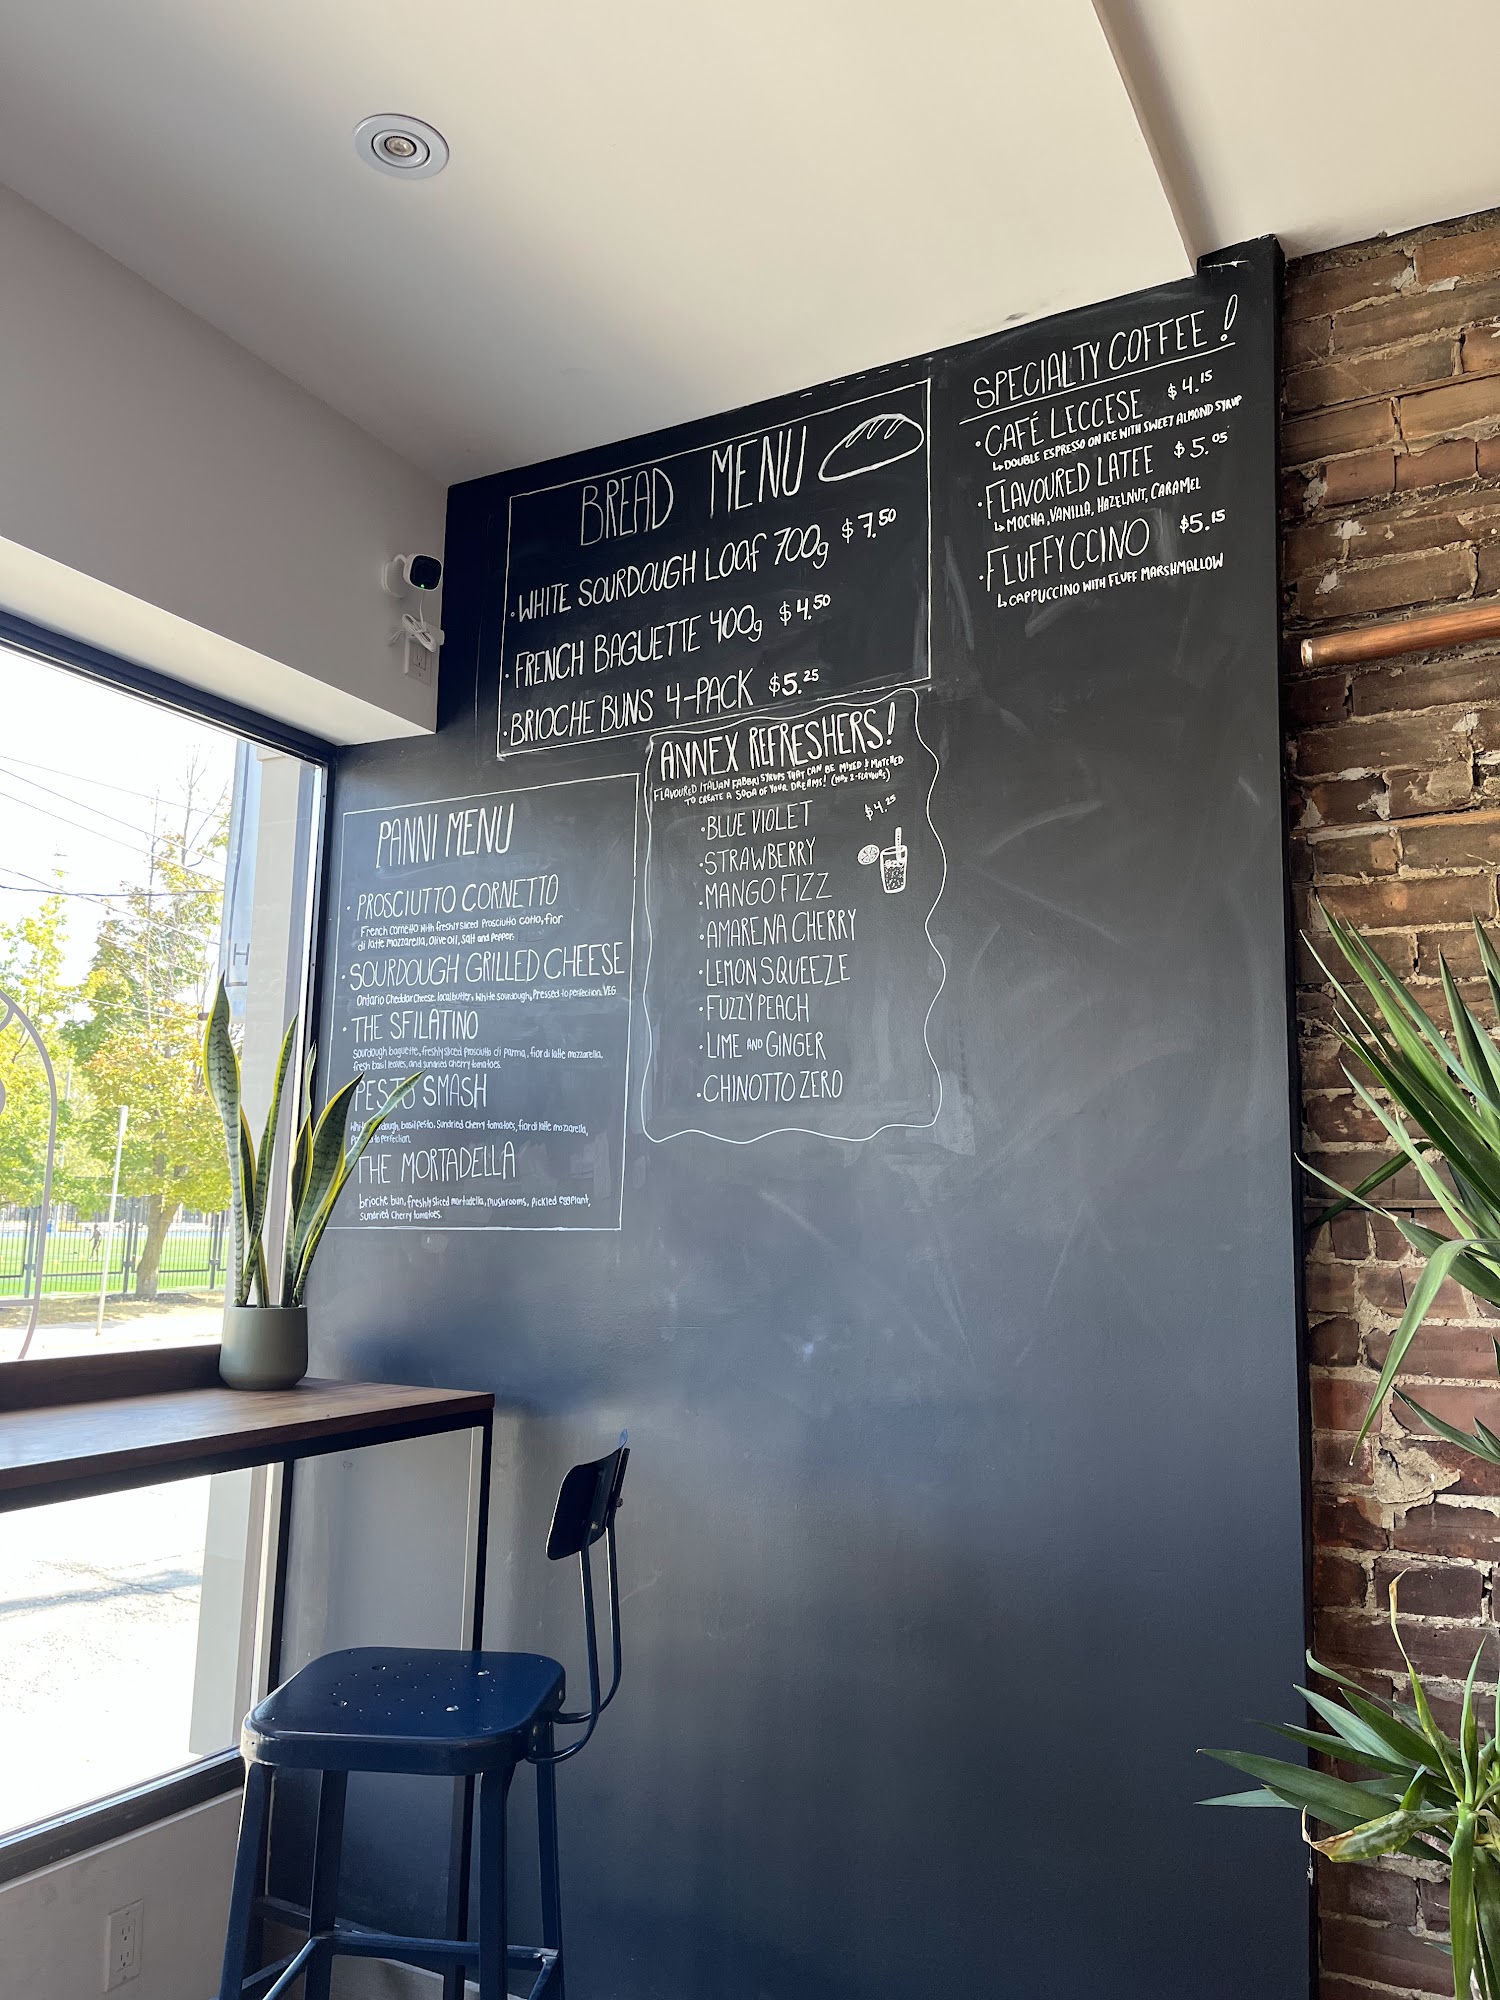 BREAD MENU
· WHITE SOURDOUGH LOAF 700g $7.50
· FRENCH BAGUETTE 400g $4.50
· BRIOCHE BUNS 4-PACK $5.25
SPECIALTY COFFEE!
· CAFÉ LECCESE $4.15
↳ DOUBLE ESPRESSO ON ICE WITH SWEET ALMOND SYRUP
· FLAVOURED LATEE $5.05
↳ MOCHA, VANILLA, HAZELNUT, CARAMEL
· FLUFFYCCINO $5.15
↳ CAPPUCCINO WITH FLUFF MARSHMALLOW
ANNEX REFRESHERS!
FLAVOURED ITALIAN FABBRI SYRUPS THAT CAN BE MIXED & MATCHED
TO CREATE A SODA OF YOUR DREAMS! (MAX 2-FLAVOURS)
· BLUE VIOLET $4.25
· STRAWBERRY
· MANGO FIZZ
· AMARENA CHERRY
· LEMON SQUEEZE
· FUZZY PEACH
· LIME AND GINGER
· CHINOTTO ZERO
PANNI MENU
· PROSCIUTTO CORNETTO
French Cornetto with freshly sliced Prosciutto cotto, fior
di latte mozzarella, Olive oil, Salt and Pepper.
· SOURDOUGH GRILLED CHEESE
Ontario Cheddar Cheese, local butter, White sourdough, Pressed to perfection. VEG
· THE SFILATINO
Sourdough baguette, freshly sliced prosciutto di parma, fior di latte mozzarella,
fresh basil leaves, and sundried cherry tomatoes.
PESTO SMASH
basil pesto, sundried cherry tomatoes, fior di latte mozzarella,
to Perfection.
THE MORTADELLA
brioche bun, freshly sliced mortadella, mushrooms, pickled eggplant,
sundried cherry tomatoes.
H